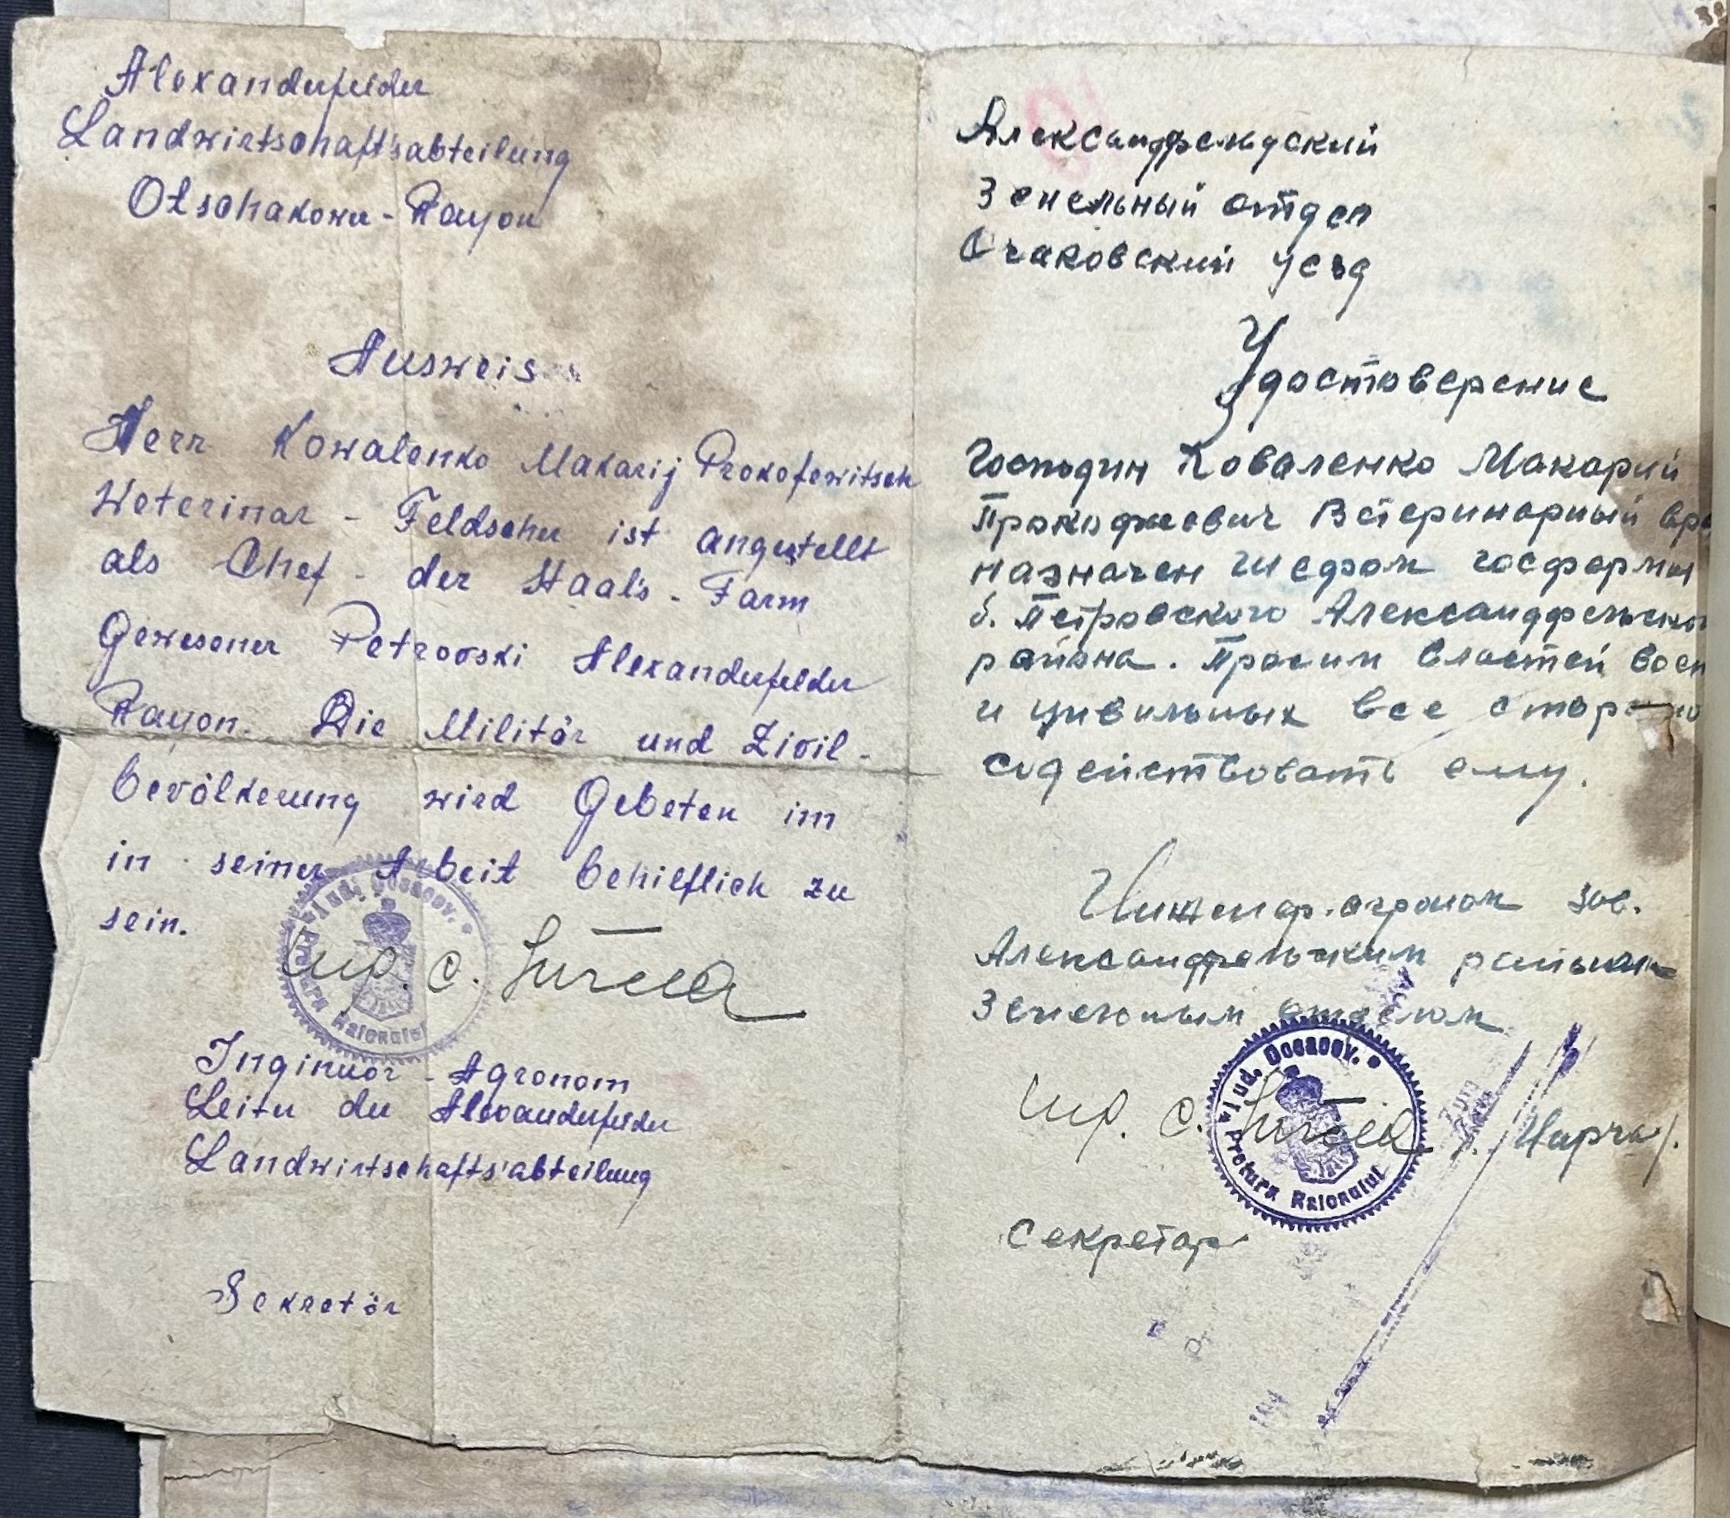 Alexanderfelder
Landwirtschaft'sabteilung
Otschakower-Rayon
Ausweis
Herr Kowalenko Makarij Prokofewitsch
Weterinar - Feldscher ist angestellt
als Chef - der Staats - Farm
Gewesener Petrovski Alexanderfelder
Rayon. Die Militär und Zivil-
bevölkerung wird Gebeten im
in seiner Arbeit behilflich zu
sein.
Jud. Oceacov.
Pretura Raionului
Inginuör - Agronom
Leiter der Alexanderfelder
Landwirtschafts'abteilung
Sekretär
Александфельдский
Земельный отдел
Очаковский уезд
Удостоверение
Господин Коваленко Макарий
Прокофиевич Ветеринарный вра
назначен Шефом госфермы
б. Петровского Александфельско
района. Просим властей воен
и цивильных все сторо но
содействовать ему.
Инженер.агроном зав.
Александфельским районым
Земельным отделом
Jud. Oceacov.
Pretura Raionului
Секретарь